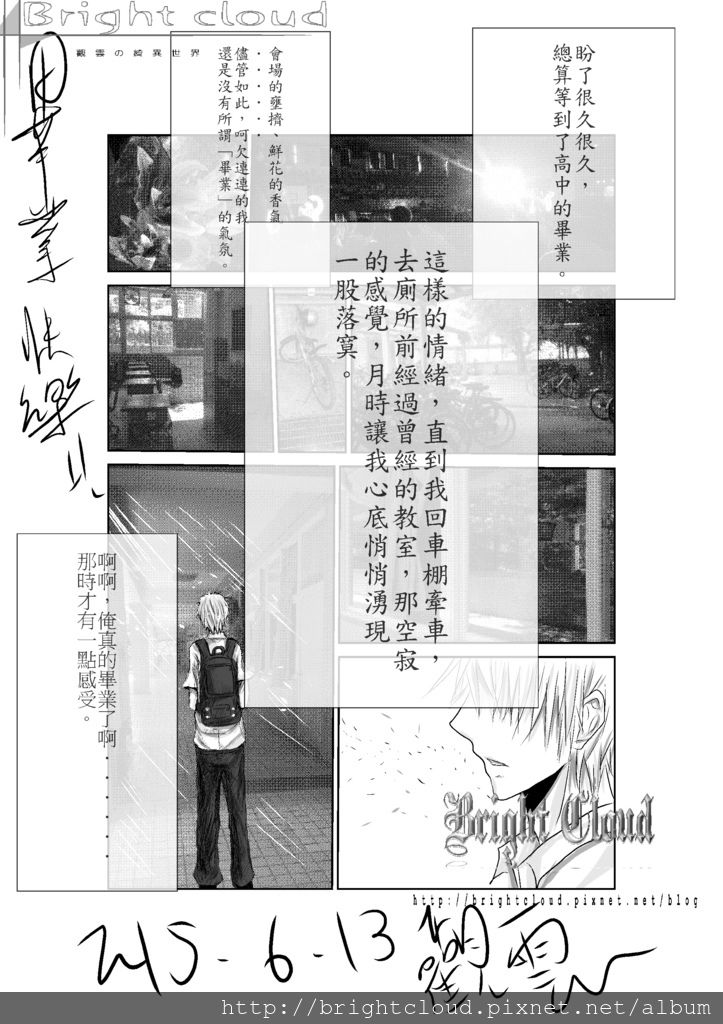 Bright cloud
觀雲の綺異世界
畢業快樂!!
盼了很久很久，
總算等到了高中的畢業。
會場的壅擠、鮮花的香氣
．．．．．．
儘管如此，呵欠連連的我
還是沒有所謂「畢業」的氣氛。
這樣的情緒，直到我回車棚牽車，
去廁所前經過曾經的教室，那空寂
的感覺，月時讓我心底悄悄湧現
一股落寞。
啊啊，俺真的畢業了啊．．．．．．
那時才有一點感受。
Bright Cloud
http://brightcloud.pixnet.net/blog
2015-6-13 觀雲
http://brightcloud.pixnet.net/album